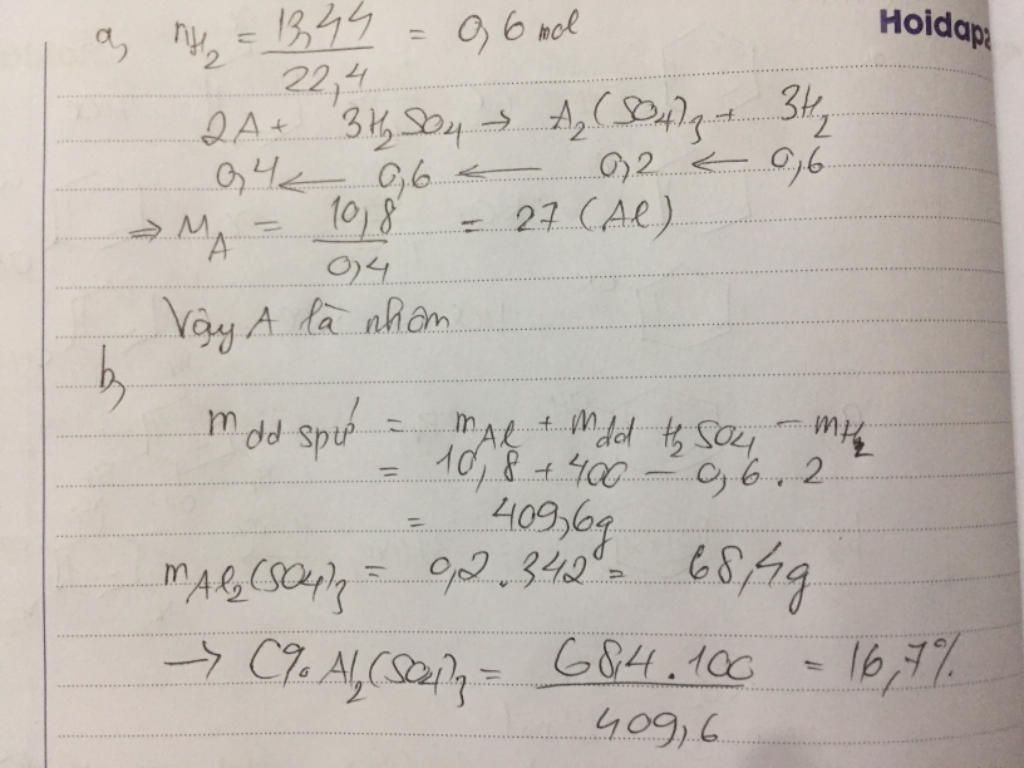 Hoidap
a, nH₂ = 13,44 / 22,4 = 0,6 mol
2A + 3H₂SO₄ → A₂(SO₄)₃ + 3H₂
0,4 ← 0,6 ← 0,2 ← 0,6
⇒ M_A = 10,8 / 0,4 = 27 (Al)
Vậy A là nhôm
b,
m dd spứ = m Al + m dd H₂SO₄ − m H₂
= 10,8 + 400 − 0,6 . 2
= 409,6g
m Al₂(SO₄)₃ = 0,2 . 342 = 68,4g
→ C% Al₂(SO₄)₃ = 68,4 . 100 / 409,6 = 16,7%